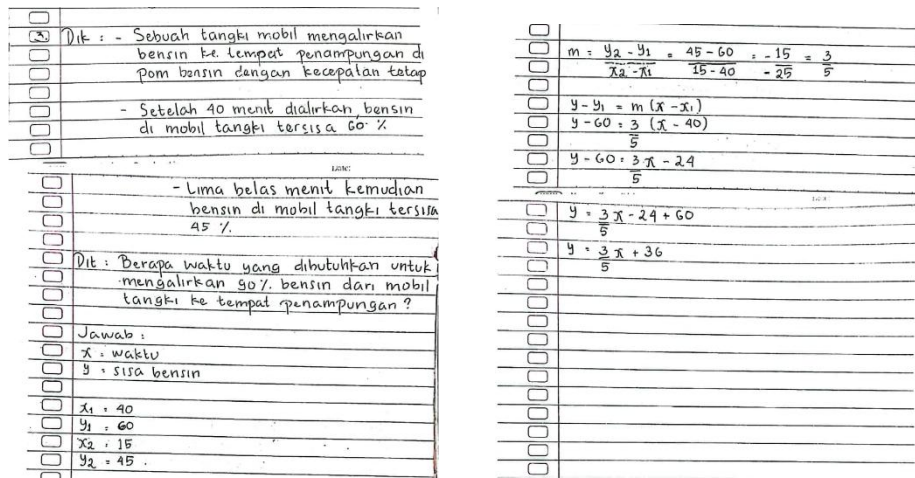 3. Dik : - Sebuah tangki mobil mengalirkan
bensin ke tempat penampungan di
pom bensin dengan kecepatan tetap
- Setelah 40 menit dialirkan, bensin
di mobil tangki tersisa 60 %
- Lima belas menit kemudian
bensin di mobil tangki tersisa
45 %.
Dit : Berapa waktu yang dibutuhkan untuk
mengalirkan 90% bensin dari mobil
tangki ke tempat penampungan ?
Jawab :
x = waktu
y = sisa bensin
x₁ = 40
y₁ = 60
x₂ = 15
y₂ = 45 .
m = y₂ - y₁ / x₂ - x₁ = 45 - 60 / 15 - 40 = -15 / -25 = 3 / 5
y - y₁ = m (x - x₁)
y - 60 = 3/5 (x - 40)
y - 60 = 3/5 x - 24
y = 3/5 x - 24 + 60
y = 3/5 x + 36